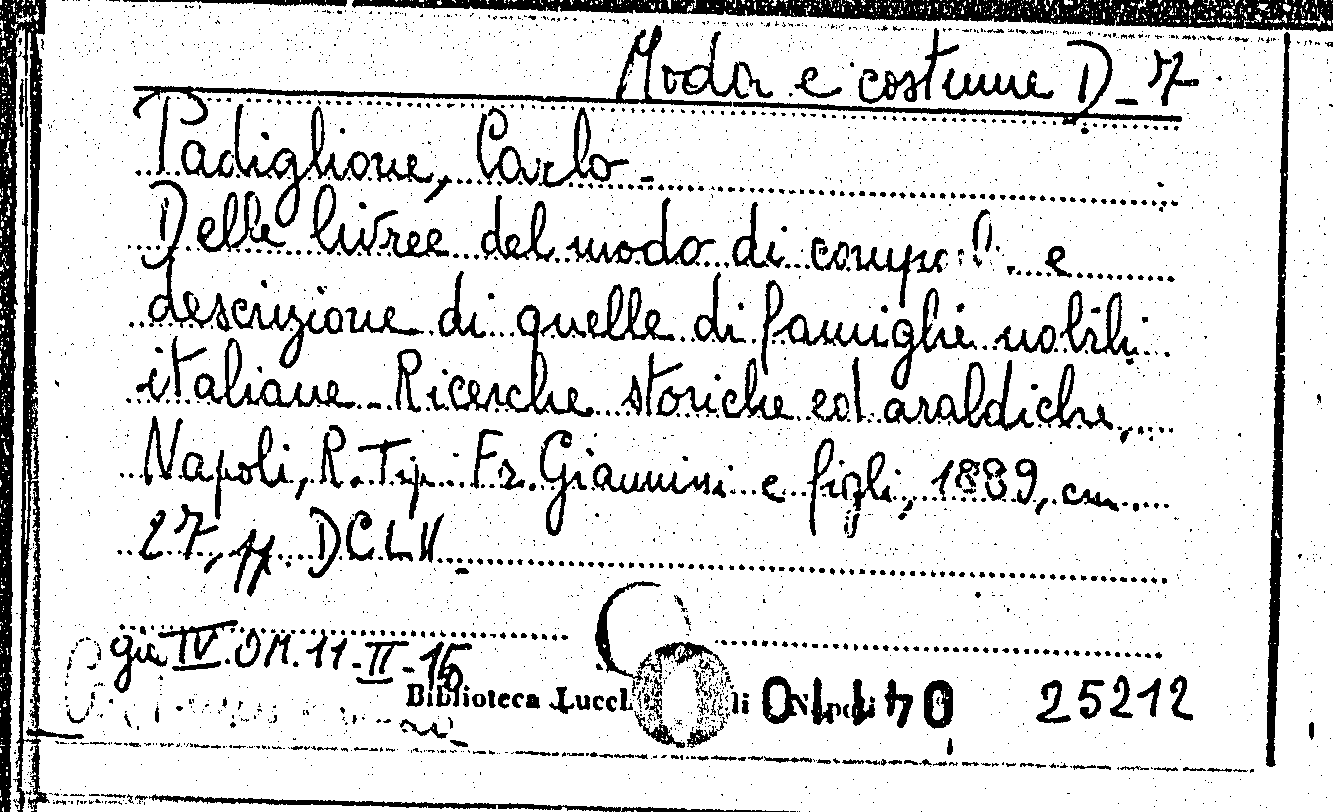 Moda e costume D-7
Padiglione, Carlo -
Delle livree del modo di e
descrizione di quelle di famiglie nobili
italiane - Ricerche storiche ed araldiche,
Napoli, R. Tip. Fr. Giannini e figli, 1889, cm.
27, pp. DCLV -
già IV.OM.11-II-15
Biblioteca 25212